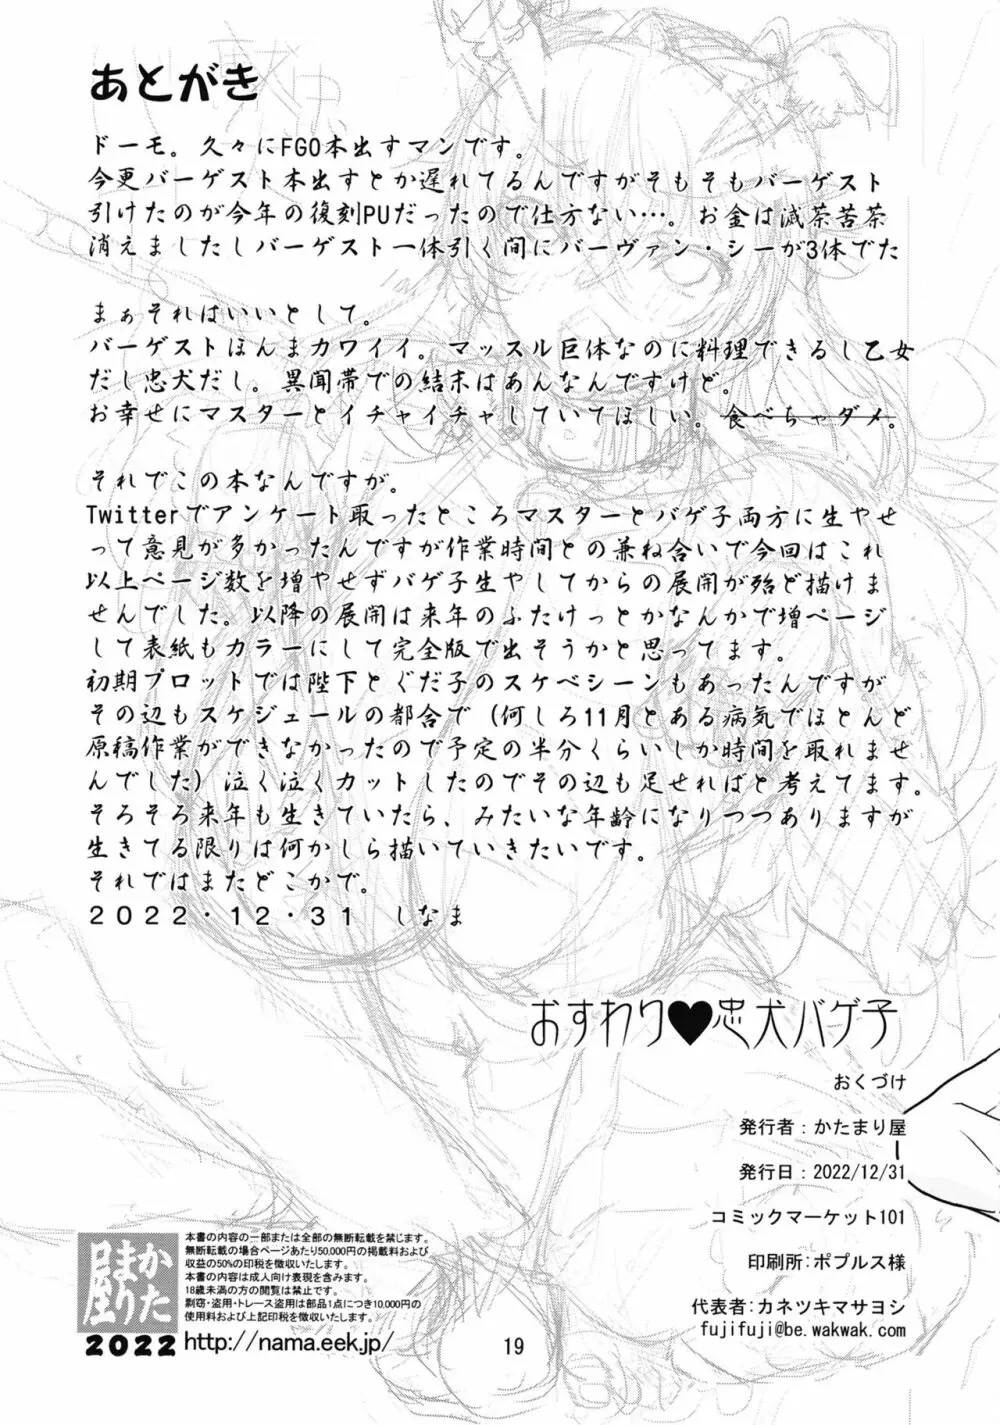 あとがき
ドーモ。久々にFGO本出すマンです。
今更バーゲスト本出すとか遅れてるんですがそもそもバーゲスト
引けたのが今年の復刻PUだったので仕方ない…。お金は滅茶苦茶
消えましたしバーゲスト一体引く間にバーヴァン・シーが3体でた
まぁそれはいいとして。
バーゲストほんまカワイイ。マッスル巨体なのに料理できるし乙女
だし忠犬だし。異聞帯での結末はあんなんですけど。
お幸せにマスターとイチャイチャしていてほしい。食べちゃダメ。
それでこの本なんですが。
Twitterでアンケート取ったところマスターとバゲ子両方に生やせ
って意見が多かったんですが作業時間との兼ね合いで今回はこれ
以上ページ数を増やせずバゲ子生やしてからの展開が殆ど描けま
せんでした。以降の展開は来年のふたけっとかなんかで増ページ
して表紙もカラーにして完全版で出そうかと思ってます。
初期プロットでは陛下とぐだ子のスケベシーンもあったんですが
その辺もスケジュールの都合で（何しろ11月とある病気でほとんど
原稿作業ができなかったので予定の半分くらいしか時間を取れませ
んでした）泣く泣くカットしたのでその辺も足せればと考えてます。
そろそろ来年も生きていたら、みたいな年齢になりつつありますが
生きてる限りは何かしら描いていきたいです。
それではまたどこかで。
２０２２・１２・３１　しなま
おすわり♥忠犬バゲ子
おくづけ
発行者：かたまり屋
発行日：2022/12/31
コミックマーケット101
印刷所：ポプルス様
代表者：カネツキマサヨシ
fujifuji@be.wakwak.com
かたまり屋
2022
本書の内容の一部または全部の無断転載を禁じます。
無断転載の場合ページあたり50,000円の掲載料および
収益の50%の印税を徴収いたします。
本書の内容は成人向け表現を含みます。
18歳未満の方の閲覧は禁止です。
剽窃・盗用・トレース盗用は部品1点につき10,000円の
使用料および上記印税を徴収いたします。
http://nama.eek.jp/
19